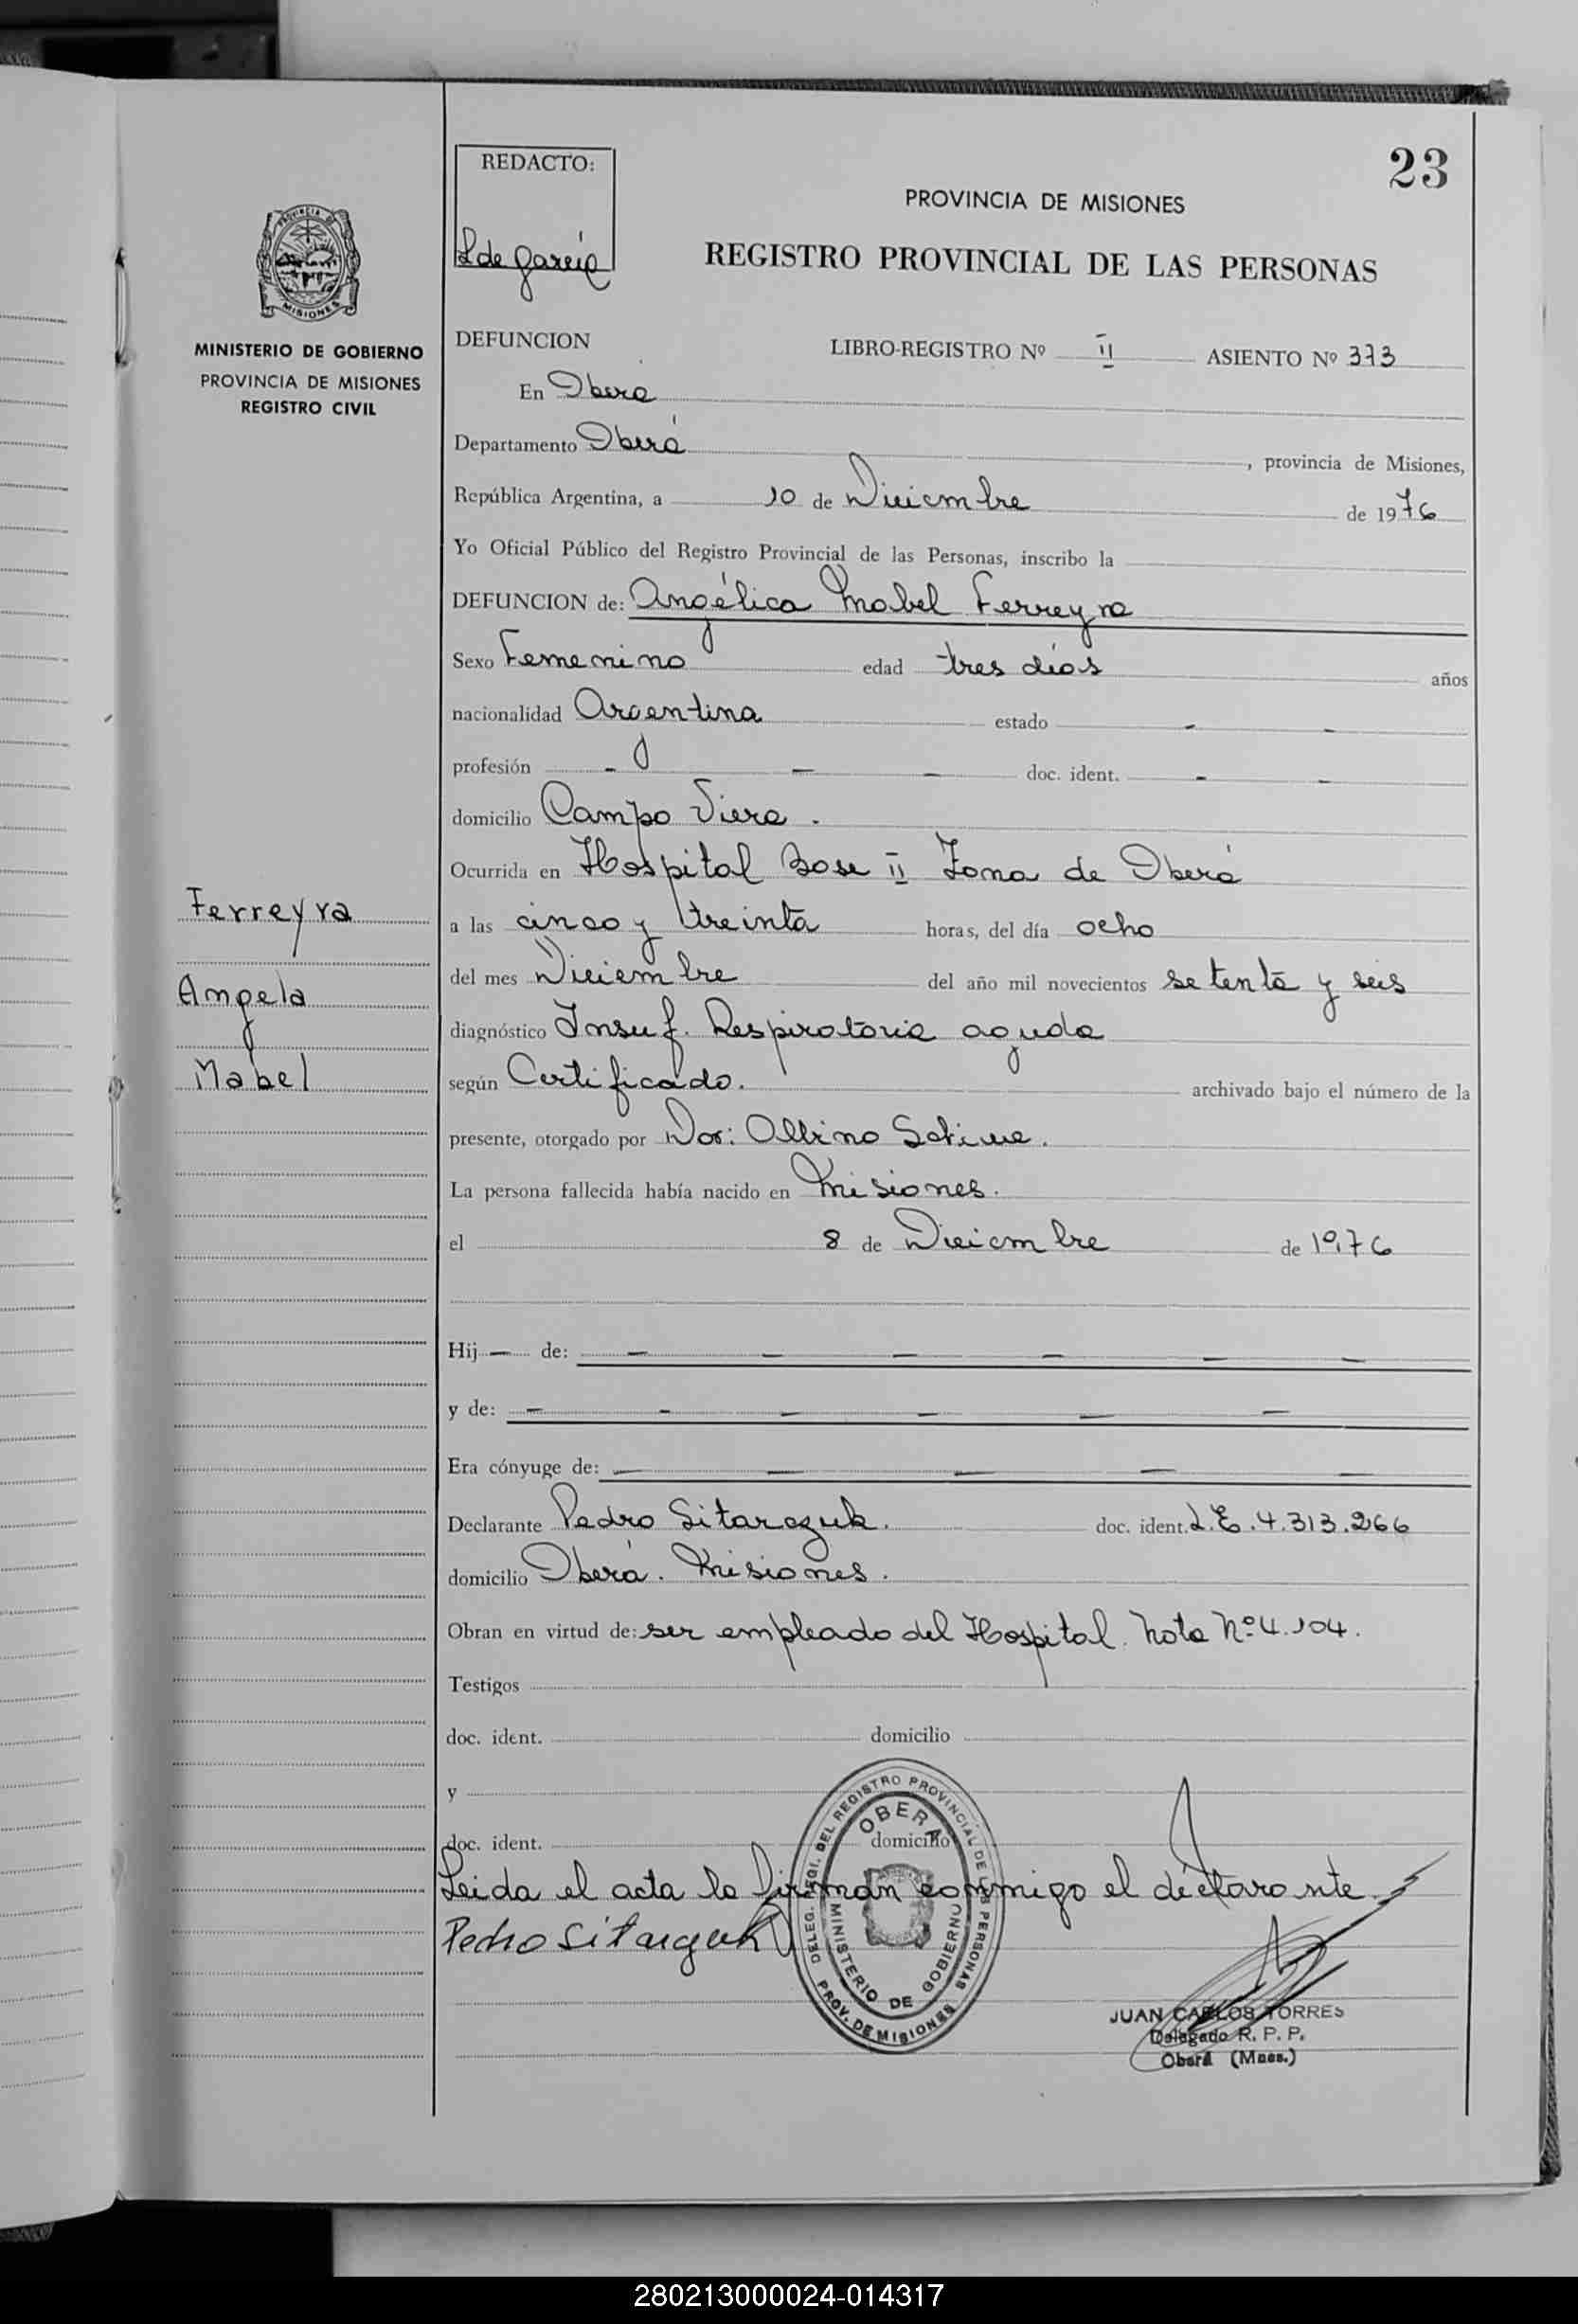 23
REDACTO:
L de García
PROVINCIA DE MISIONES
REGISTRO PROVINCIAL DE LAS PERSONAS
PROVINCIA DE MISIONES
MINISTERIO DE GOBIERNO
PROVINCIA DE MISIONES
REGISTRO CIVIL
Ferreyra
Angela
Mabel
DEFUNCION LIBRO-REGISTRO Nº II ASIENTO Nº 373
En Oberá
Departamento Oberá, provincia de Misiones,
República Argentina, a 10 de Diciembre de 1976
Yo Oficial Público del Registro Provincial de las Personas, inscribo la
DEFUNCION de: Angélica Mabel Ferreyra
Sexo Femenino edad tres días años
nacionalidad Argentina estado - -
profesión - - - doc. ident. - -
domicilio Campo Viera.
Ocurrida en Hospital Base II Zona de Oberá
a las cinco y treinta horas, del día ocho
del mes Diciembre del año mil novecientos setenta y seis
diagnóstico Insuf. Respiratoria aguda
según Certificado. archivado bajo el número de la
presente, otorgado por Dor: Albino
La persona fallecida había nacido en Misiones.
el 8 de Diciembre de 1976
Hij — de: — — — — — —
y de: — — — — — —
Era cónyuge de: — — — — —
Declarante Pedro Sitarczuk. doc. ident. L.E. 4.313.266
domicilio Oberá. Misiones.
Obran en virtud de: ser empleado del Hospital. Nota Nº 4.104.
Testigos
doc. ident. domicilio
y
doc. ident. domicilio
Leida el acta la firman conmigo el declarante.
Pedro Sitarczuk
DELEG. REGI. DEL REGISTRO PROVINCIAL DE LAS PERSONAS
OBERA
MINISTERIO DE GOBIERNO
PROV. DE MISIONES
JUAN CARLOS TORRES
Delegado R. P. P.
Oberá (Mnes.)
280213000024-014317